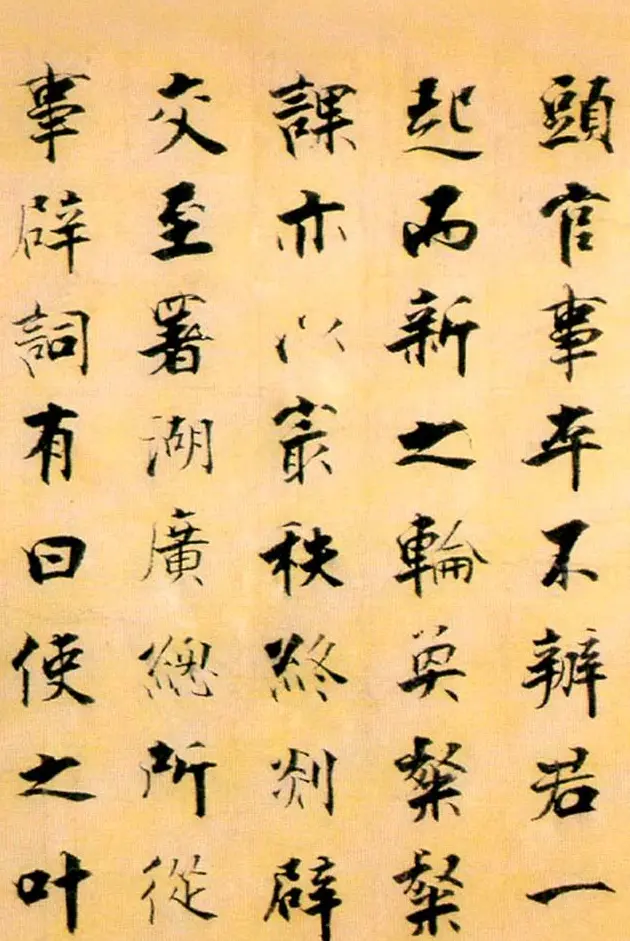 頭官事卒不辦若一
起而新之輪奐粲粲
課亦以最秩終剡辟
交至署湖廣總所從
事辟詞有曰使之叶